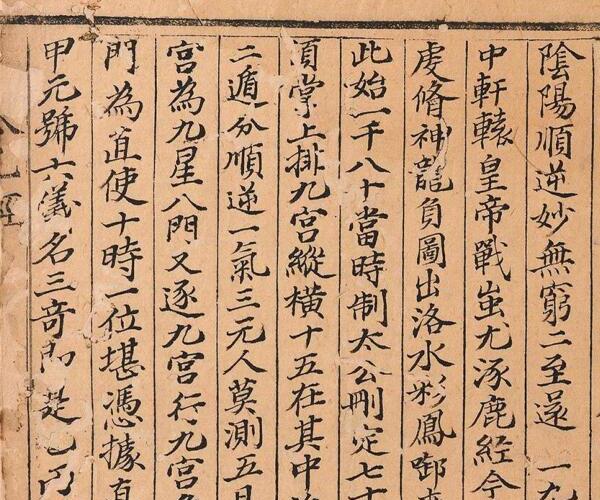 陰陽順逆妙無窮二至還一九
中軒轅皇帝戰蚩尤涿鹿經今
虔脩神龍負圖出洛水彩鳳啣
此始一千八十當時制太公刪定七十
須掌上排九宮縱橫十五在其中
二遁分順逆一氣三元人莫測五日
宮為九星八門又逐九宮行九宮
門為直使十時一位堪憑據直
甲元號六儀名三奇即是乙丙